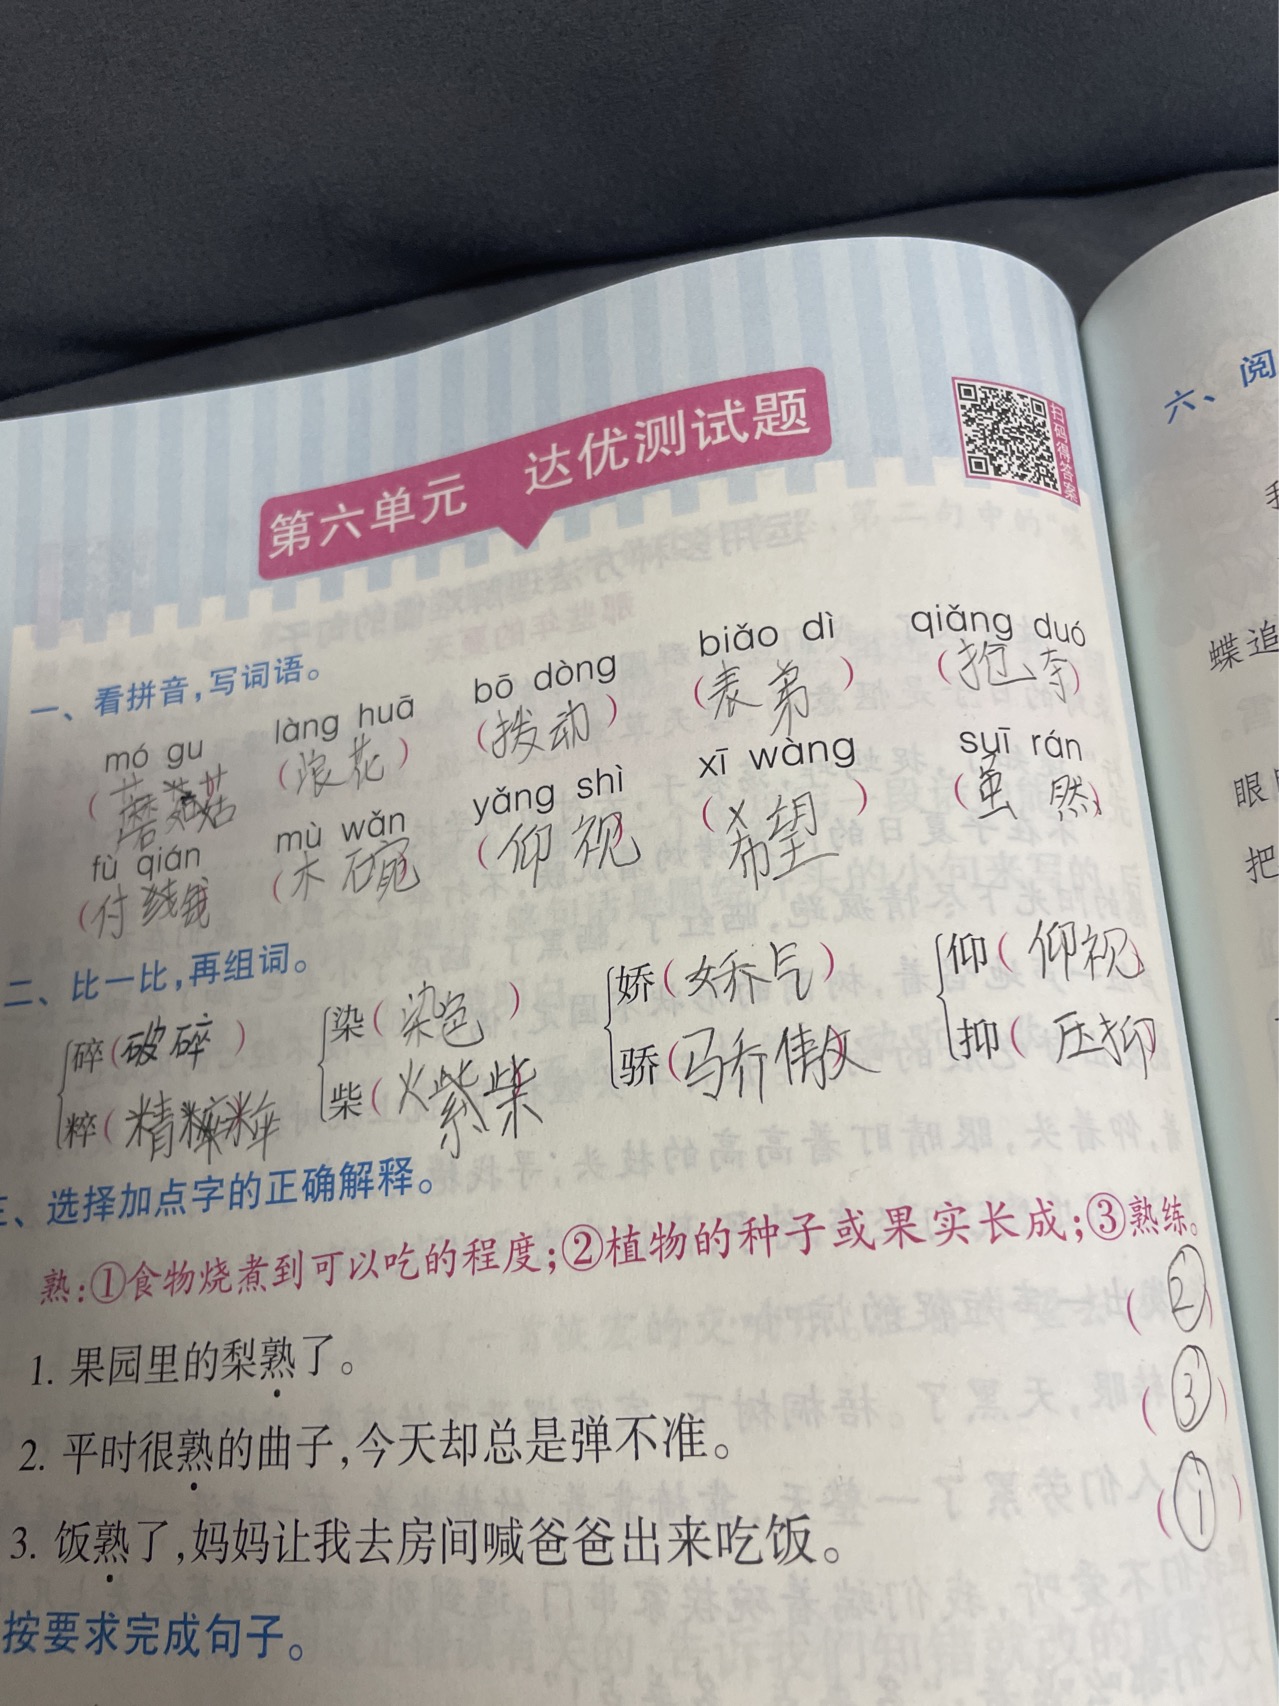 第六单元 达优测试题
扫码得答案
一、看拼音,写词语。
mó gu làng huā bō dòng biǎo dì qiǎng duó
(蘑菇) (浪花) (拨动) (表弟) (抢夺)
fù qián mù wǎn yǎng shì xī wàng suī rán
(付钱) (木碗) (仰视) (希望) (虽然)
二、比一比,再组词。
碎(破碎) 染(染色) 娇(娇气) 仰(仰视)
粹(精粹) 柴(火柴) 骄(骄傲) 抑(压抑)
三、选择加点字的正确解释。
熟:①食物烧煮到可以吃的程度;②植物的种子或果实长成;③熟练。
1. 果园里的梨熟了。 (②)
2. 平时很熟的曲子,今天却总是弹不准。 (③)
3. 饭熟了,妈妈让我去房间喊爸爸出来吃饭。 (①)
按要求完成句子。
六、阅
蝶追
眼
把